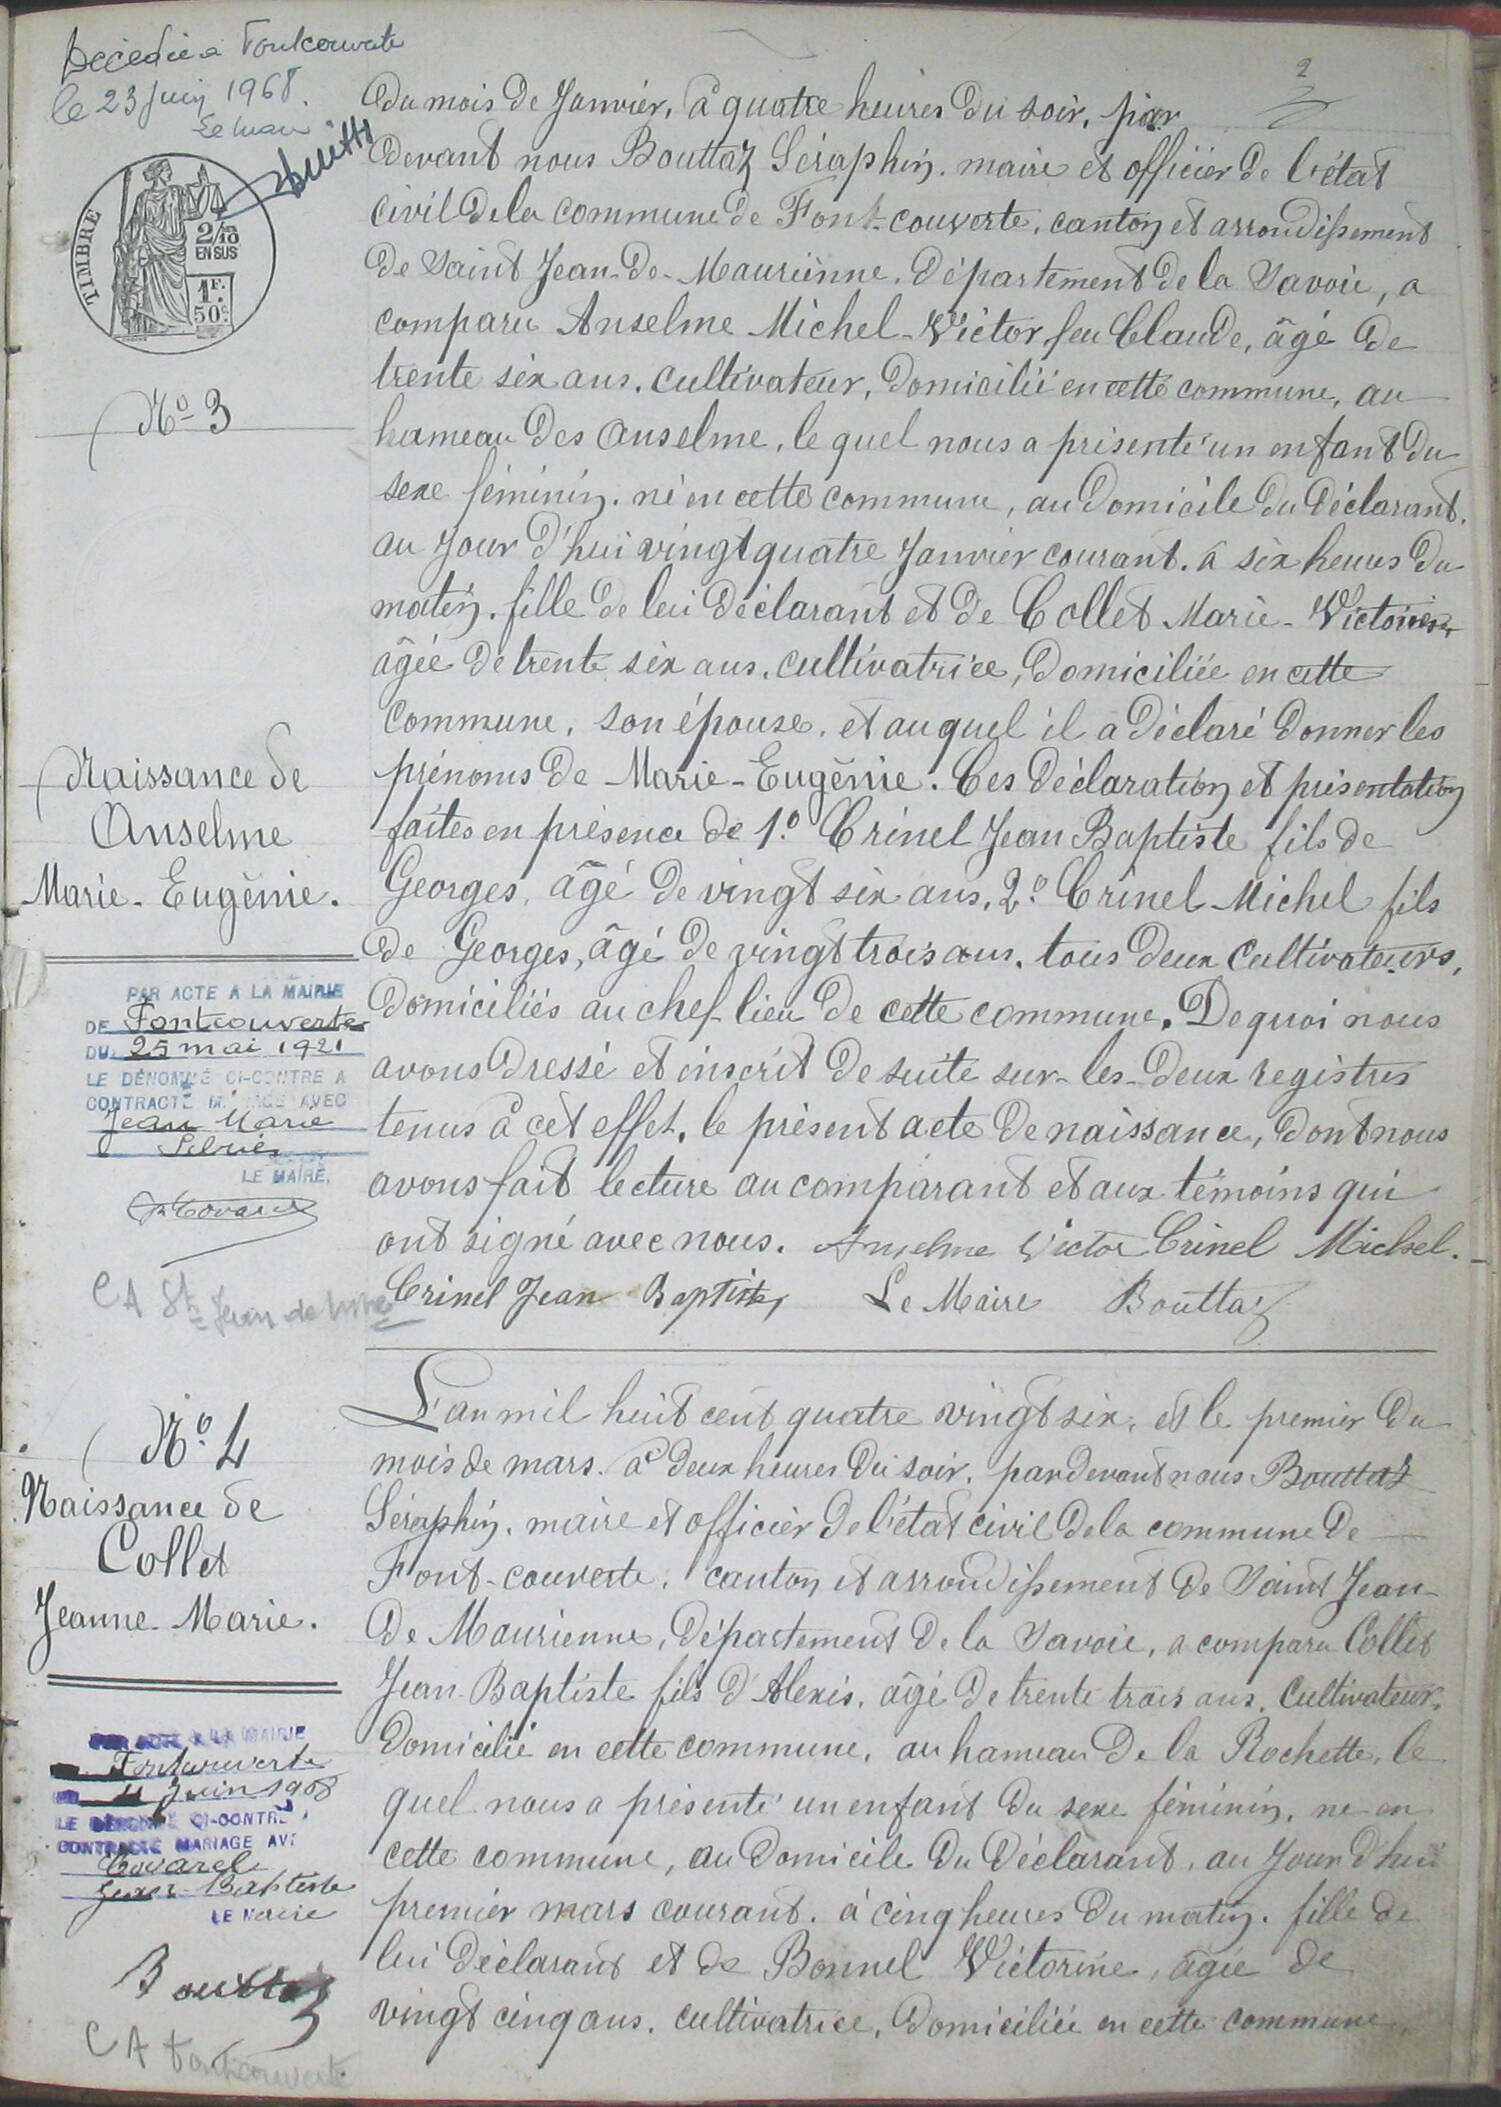 Décédée à Fontcouverte
le 23 Juin 1968.
Le Maire
TIMBRE
2/10
EN SUS
1F.
50c.
2
du mois de Janvier, à quatre heures du soir, par
devant nous Bouttaz Séraphin. maire et officier de l'état
civil de la commune de Font-couverte, canton et arrondissement
de Saint Jean-de-Maurienne. Département de la Savoie, a
comparu Anselme Michel-Victor feu Claude, âgé de
trente six ans. cultivateur, domicilié en cette commune, au
hameau des Anselme, le quel nous a présenté un enfant du
sexe féminin. né en cette commune, au domicile du déclarant.
au jour d'hui vingt quatre Janvier courant. à six heures du
matin. fille de lui déclarant et de Collet Marie-Victorine
âgée de trente six ans. cultivatrice, domiciliée en cette
commune, son épouse. et auquel il a déclaré donner les
prénoms de Marie-Eugénie. Ces déclaration et présentation
faites en présence de 1.° Crinel Jean Baptiste fils de
Georges, âgé de vingt six ans, 2.° Crinel Michel fils
de Georges, âgé de vingt trois ans. tous deux cultivateurs,
domiciliés au chef-lieu de cette commune. De quoi nous
avons dressé et inscrit de suite sur-les-deux registres
tenus à cet effet, le présent acte de naissance, dont nous
avons fait lecture au comparant et aux témoins qui
ont signé avec nous. Anselme Victor Crinel Michel.
Crinel Jean Baptiste Le Maire Bouttaz
N° 3
Naissance de
Anselme
Marie-Eugénie.
PAR ACTE A LA MAIRIE
DE Fontcouverte
DU 25 mai 1921
LE DÉNOMMÉ CI-CONTRE A
CONTRACTÉ MARIAGE AVEC
Jean Marie
LE MAIRE,
CA St Jean de Mne
N.° 4
Naissance de
Collet
Jeanne-Marie.
L'an mil huit cent quatre vingt six, et le premier du
mois de mars. à deux heures du soir. par devant nous Bouttaz
Séraphin. maire et officier de l'état civil de la commune de
Font-couverte. canton et arrondissement de Saint Jean-
de Maurienne, département de la Savoie, a comparu Collet
Jean-Baptiste fils d'Alexis, âgé de trente trois ans. cultivateur.
domicilié en cette commune, au hameau de la Rochette, le
quel nous a présenté un enfant du sexe féminin. né en
cette commune, au domicile du déclarant, au jour d'hui
premier mars courant. à cinq heures du matin. fille de
lui déclarant et de Bonnel Victorine, âgée de
vingt cinq ans. cultivatrice, domiciliée en cette commune,
PAR ACTE A LA MAIRIE
Fontcouverte
Juin 1908
LE DÉNOMMÉ CI-CONTRE A
CONTRACTÉ MARIAGE AVEC
Covarel
Jean-Baptiste
LE Maire
Bouttaz
CA Fontcouverte